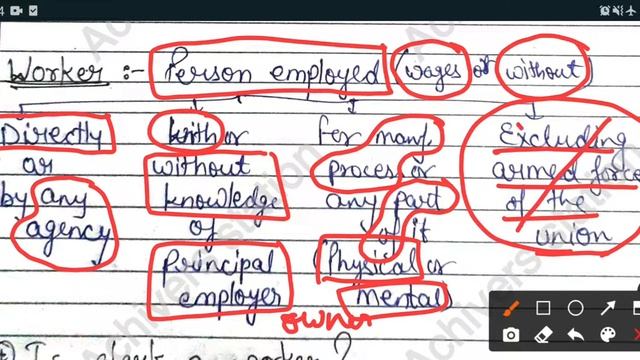 4
Worker :- Person employed (wages or without)
Directly
or
by any
agency
with or
without
knowledge
of
principal
employer
For manf.
process or
any part
of it
(Physical or
mental)
owner
Excluding
armed force
of the
union
Achivers station